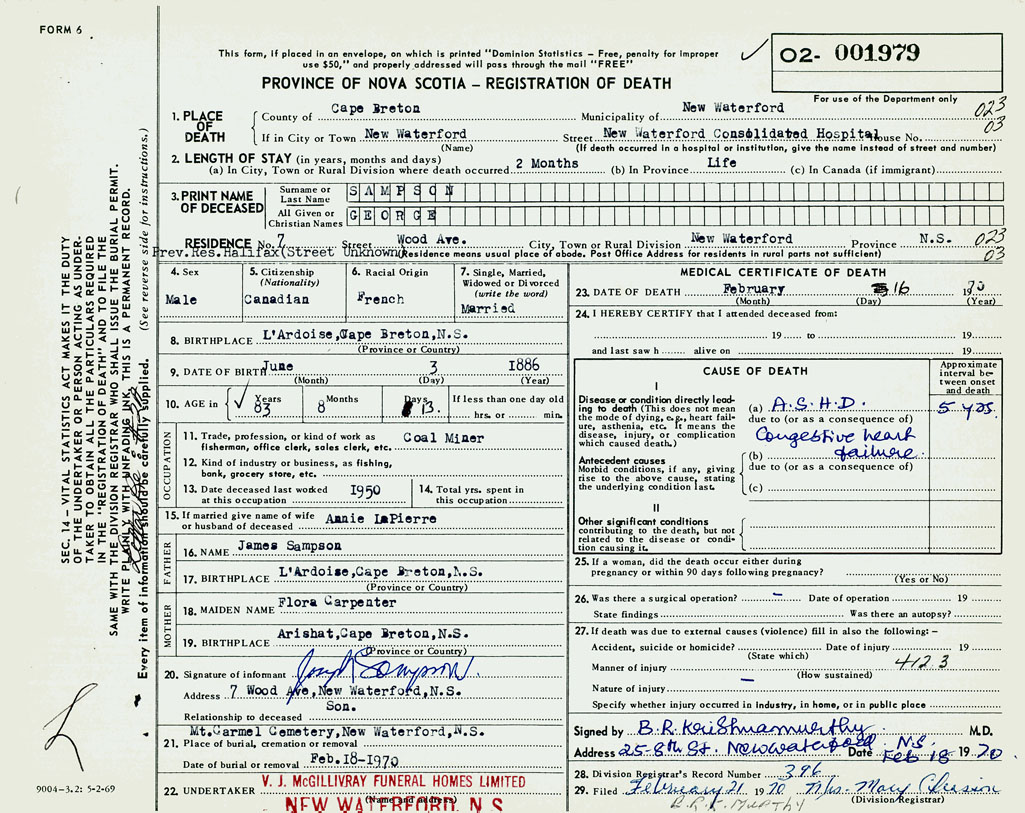 FORM 6
This form, if placed in an envelope, on which is printed "Dominion Statistics – Free, penalty for improper
use $50," and properly addressed will pass through the mail "FREE"
02- 001979
PROVINCE OF NOVA SCOTIA – REGISTRATION OF DEATH
For use of the Department only
1. PLACE OF DEATH
County of Cape Breton Municipality of New Waterford 023
If in City or Town New Waterford Street New Waterford Consolidated Hospital House No. 03
(Name) (If death occurred in a hospital or institution, give the name instead of street and number)
2. LENGTH OF STAY (in years, months and days)
(a) In City, Town or Rural Division where death occurred 2 Months (b) In Province Life (c) In Canada (if immigrant)
3. PRINT NAME OF DECEASED
Surname or Last Name SAMPSON
All Given or Christian Names GEORGE
RESIDENCE No. 7 Street Wood Ave. City, Town or Rural Division New Waterford Province N.S. 023
Prev.Res.Halifax(Street Unknown) (Residence means usual place of abode. Post Office Address for residents in rural parts not sufficient) 03
4. Sex
Male
5. Citizenship
(Nationality)
Canadian
6. Racial Origin
French
7. Single, Married,
Widowed or Divorced
(write the word)
Married
8. BIRTHPLACE L'Ardoise,Cape Breton,N.S.
(Province or Country)
9. DATE OF BIRTH June 3 1886
(Month) (Day) (Year)
10. AGE in Years 83 Months 8 Days 13. If less than one day old
hrs. or min.
OCCUPATION
11. Trade, profession, or kind of work as Coal Miner
fisherman, office clerk, sales clerk, etc.
12. Kind of industry or business, as fishing,
bank, grocery store, etc.
13. Date deceased last worked 1950
at this occupation
14. Total yrs. spent in
this occupation
15. If married give name of wife Annie LaPierre
or husband of deceased
FATHER
16. NAME James Sampson
17. BIRTHPLACE L'Ardoise,Cape Breton,N.S.
(Province or Country)
MOTHER
18. MAIDEN NAME Flora Carpenter
19. BIRTHPLACE Arishat,Cape Breton,N.S.
(Province or Country)
20. Signature of informant Joseph Sampson
Address 7 Wood Ave,New Waterford,N.S.
Son.
Relationship to deceased
Mt.Carmel Cemetery,New Waterford,N.S.
21. Place of burial, cremation or removal
Date of burial or removal Feb.18-1970
22. UNDERTAKER V. J. McGILLIVRAY FUNERAL HOMES LIMITED
(Name and address)
NEW WATERFORD, N.S.
MEDICAL CERTIFICATE OF DEATH
23. DATE OF DEATH February 16 1970
(Month) (Day) (Year)
24. I HEREBY CERTIFY that I attended deceased from:
19 to 19
and last saw h alive on 19
CAUSE OF DEATH
Approximate interval between onset and death
I
Disease or condition directly leading to death (This does not mean the mode of dying, e.g., heart failure, asthenia, etc. It means the disease, injury, or complication which caused death.)
(a) A.S.H.D. 5 yrs.
due to (or as a consequence of)
Congestive heart
(b) failure
Antecedent causes
Morbid conditions, if any, giving rise to the above cause, stating the underlying condition last.
due to (or as a consequence of)
(c)
II
Other significant conditions
contributing to the death, but not related to the disease or condition causing it.
25. If a woman, did the death occur either during
pregnancy or within 90 days following pregnancy?
(Yes or No)
26. Was there a surgical operation? – Date of operation 19
State findings Was there an autopsy?
27. If death was due to external causes (violence) fill in also the following: –
Accident, suicide or homicide? Date of injury 19
(State which) 412 3
Manner of injury
(How sustained)
Nature of injury –
Specify whether injury occurred in industry, in home, or in public place
Signed by B.R. Krishnamurthy M.D.
Address 25-8th St. New Waterford N.S. Date Feb 18 1970
28. Division Registrar's Record Number 396
29. Filed February 21 1970 Mrs. Mary
(Division Registrar)
B.R.K. MURTHY
SEC. 14 – VITAL STATISTICS ACT MAKES IT THE DUTY
OF THE UNDERTAKER OR PERSON ACTING AS UNDER-
TAKER TO OBTAIN ALL THE PARTICULARS REQUIRED
IN THE "REGISTRATION OF DEATH" AND TO FILE THE
SAME WITH THE DIVISION REGISTRAR WHO SHALL ISSUE THE BURIAL PERMIT.
WRITE PLAINLY WITH UNFADING INK. THIS IS A PERMANENT RECORD.
Every item of information should be carefully supplied. (See reverse side for instructions.)
9004-3.2: 5-2-69